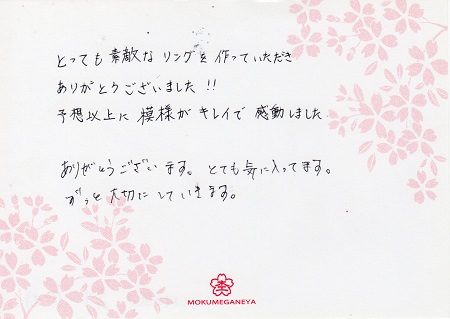 とっても素敵なリングを作っていただき
ありがとうございました!!
予想以上に模様がキレイで感動しました
ありがとうございます。とても気に入ってます。
ずっと大切にしていきます。
MOKUMEGANEYA